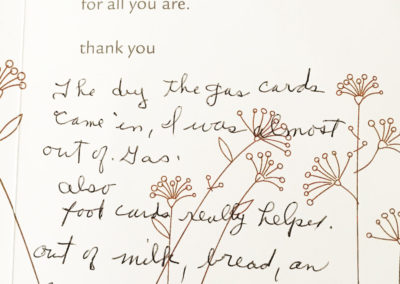 for all you are.
thank you
The dy the gas cards
came in, I was almost
out of Gas.
also
foot cards really helped.
out of milk, bread, an